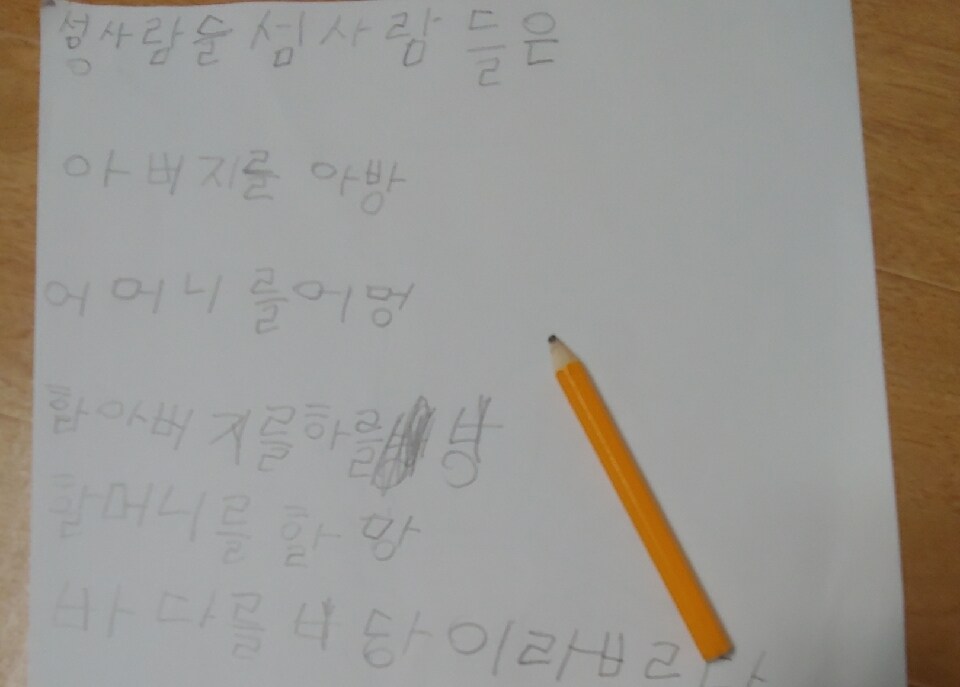 섬사람술 섬사람 들은
아버지를 아방
어머니를어멍
할아버지를하르방
할머니를 할망
바다를 바당 이라